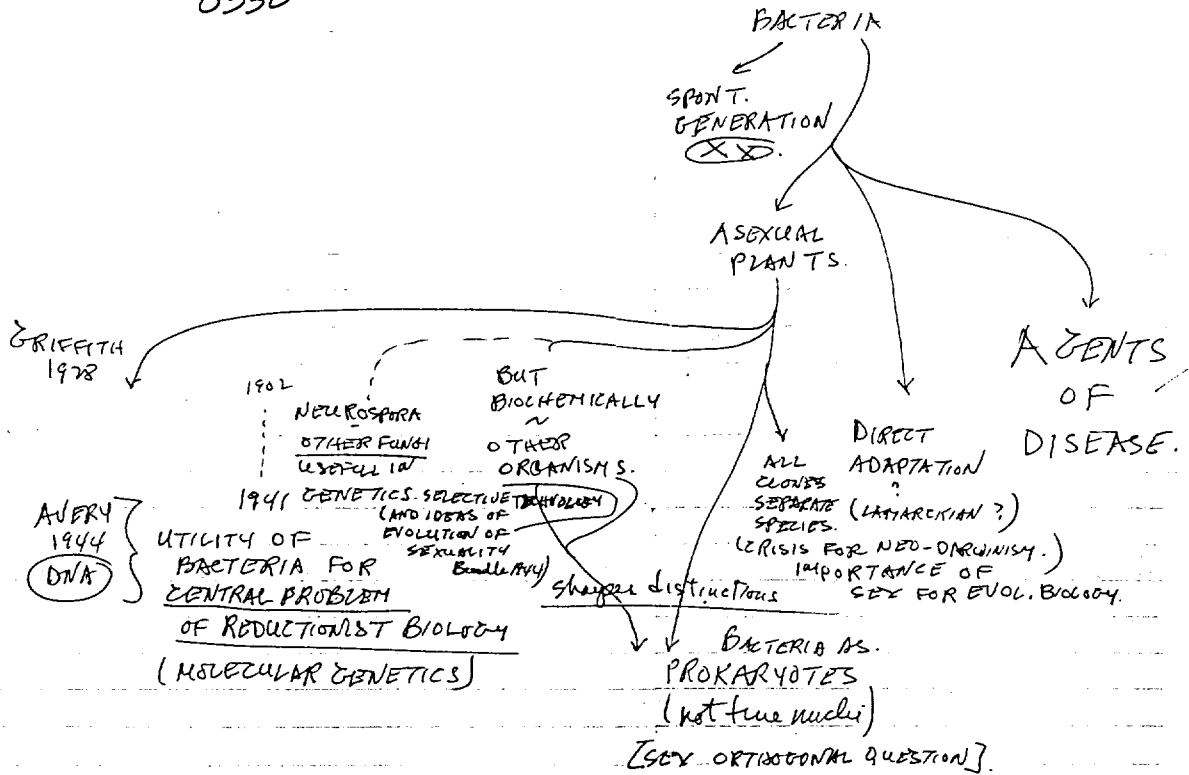 0330
BACTERIA
SPONT.
GENERATION
XX.
ASEXUAL
PLANTS.
AGENTS
OF
DISEASE.
GRIFFITH
1928
1902
1941
NEUROSPORA
OTHER FUNGI
USEFUL IN
GENETICS. SELECTIVE TECHNOLOGY
(AND IDEAS OF
EVOLUTION OF
SEXUALITY
BUT
BIOCHEMICALLY
~
OTHER
ORGANISMS.
ALL
CLONES
SEPARATE
SPECIES.
DIRECT
ADAPTATION
?
(LAMARCKIAN ?)
(CRISIS FOR NEO-DARWINISM.)
IMPORTANCE OF
SEX FOR EVOL. BIOLOGY.
AVERY
1944
DNA
UTILITY OF
BACTERIA FOR
CENTRAL PROBLEM
OF REDUCTIONIST BIOLOGY
(MOLECULAR GENETICS)
Sharper distinctions
BACTERIA AS.
PROKARYOTES
(not true nuclei)
[SEX ORTHOGONAL QUESTION].